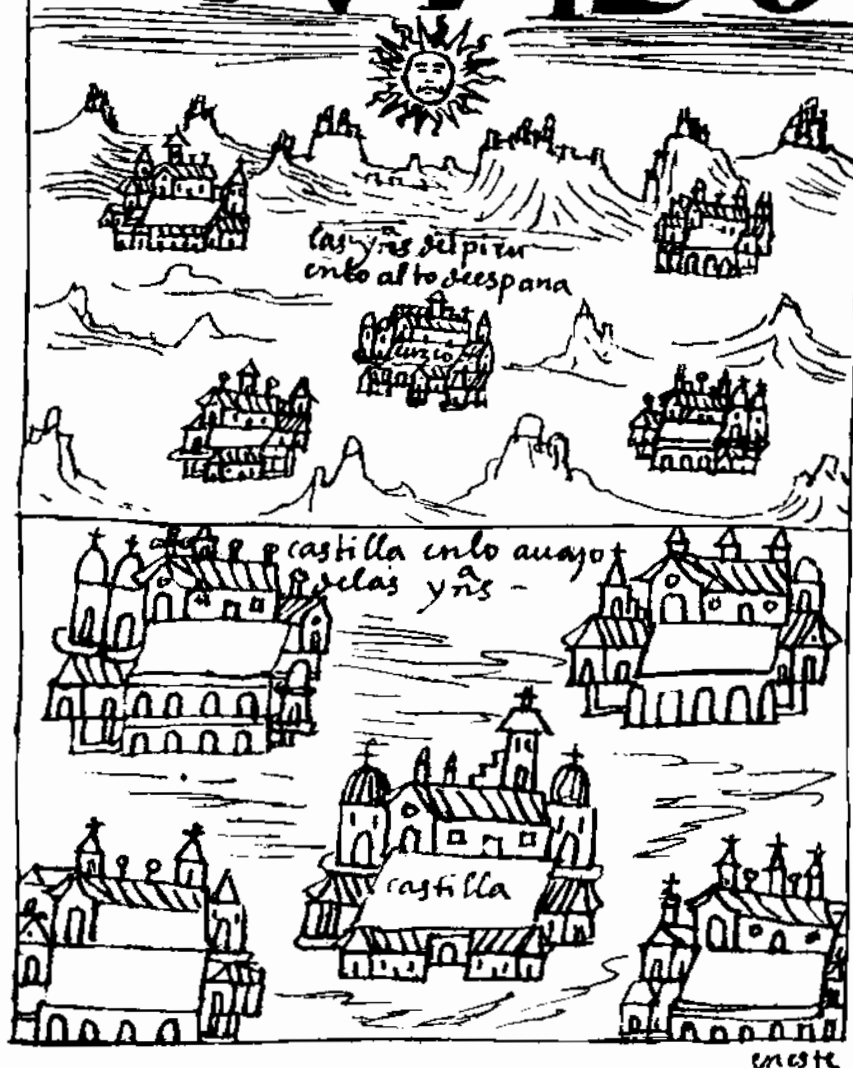 las yn͞as del piru
enlo alto de espana
cuzco
castilla enlo auajo
delas yn͞as -
castilla
en este